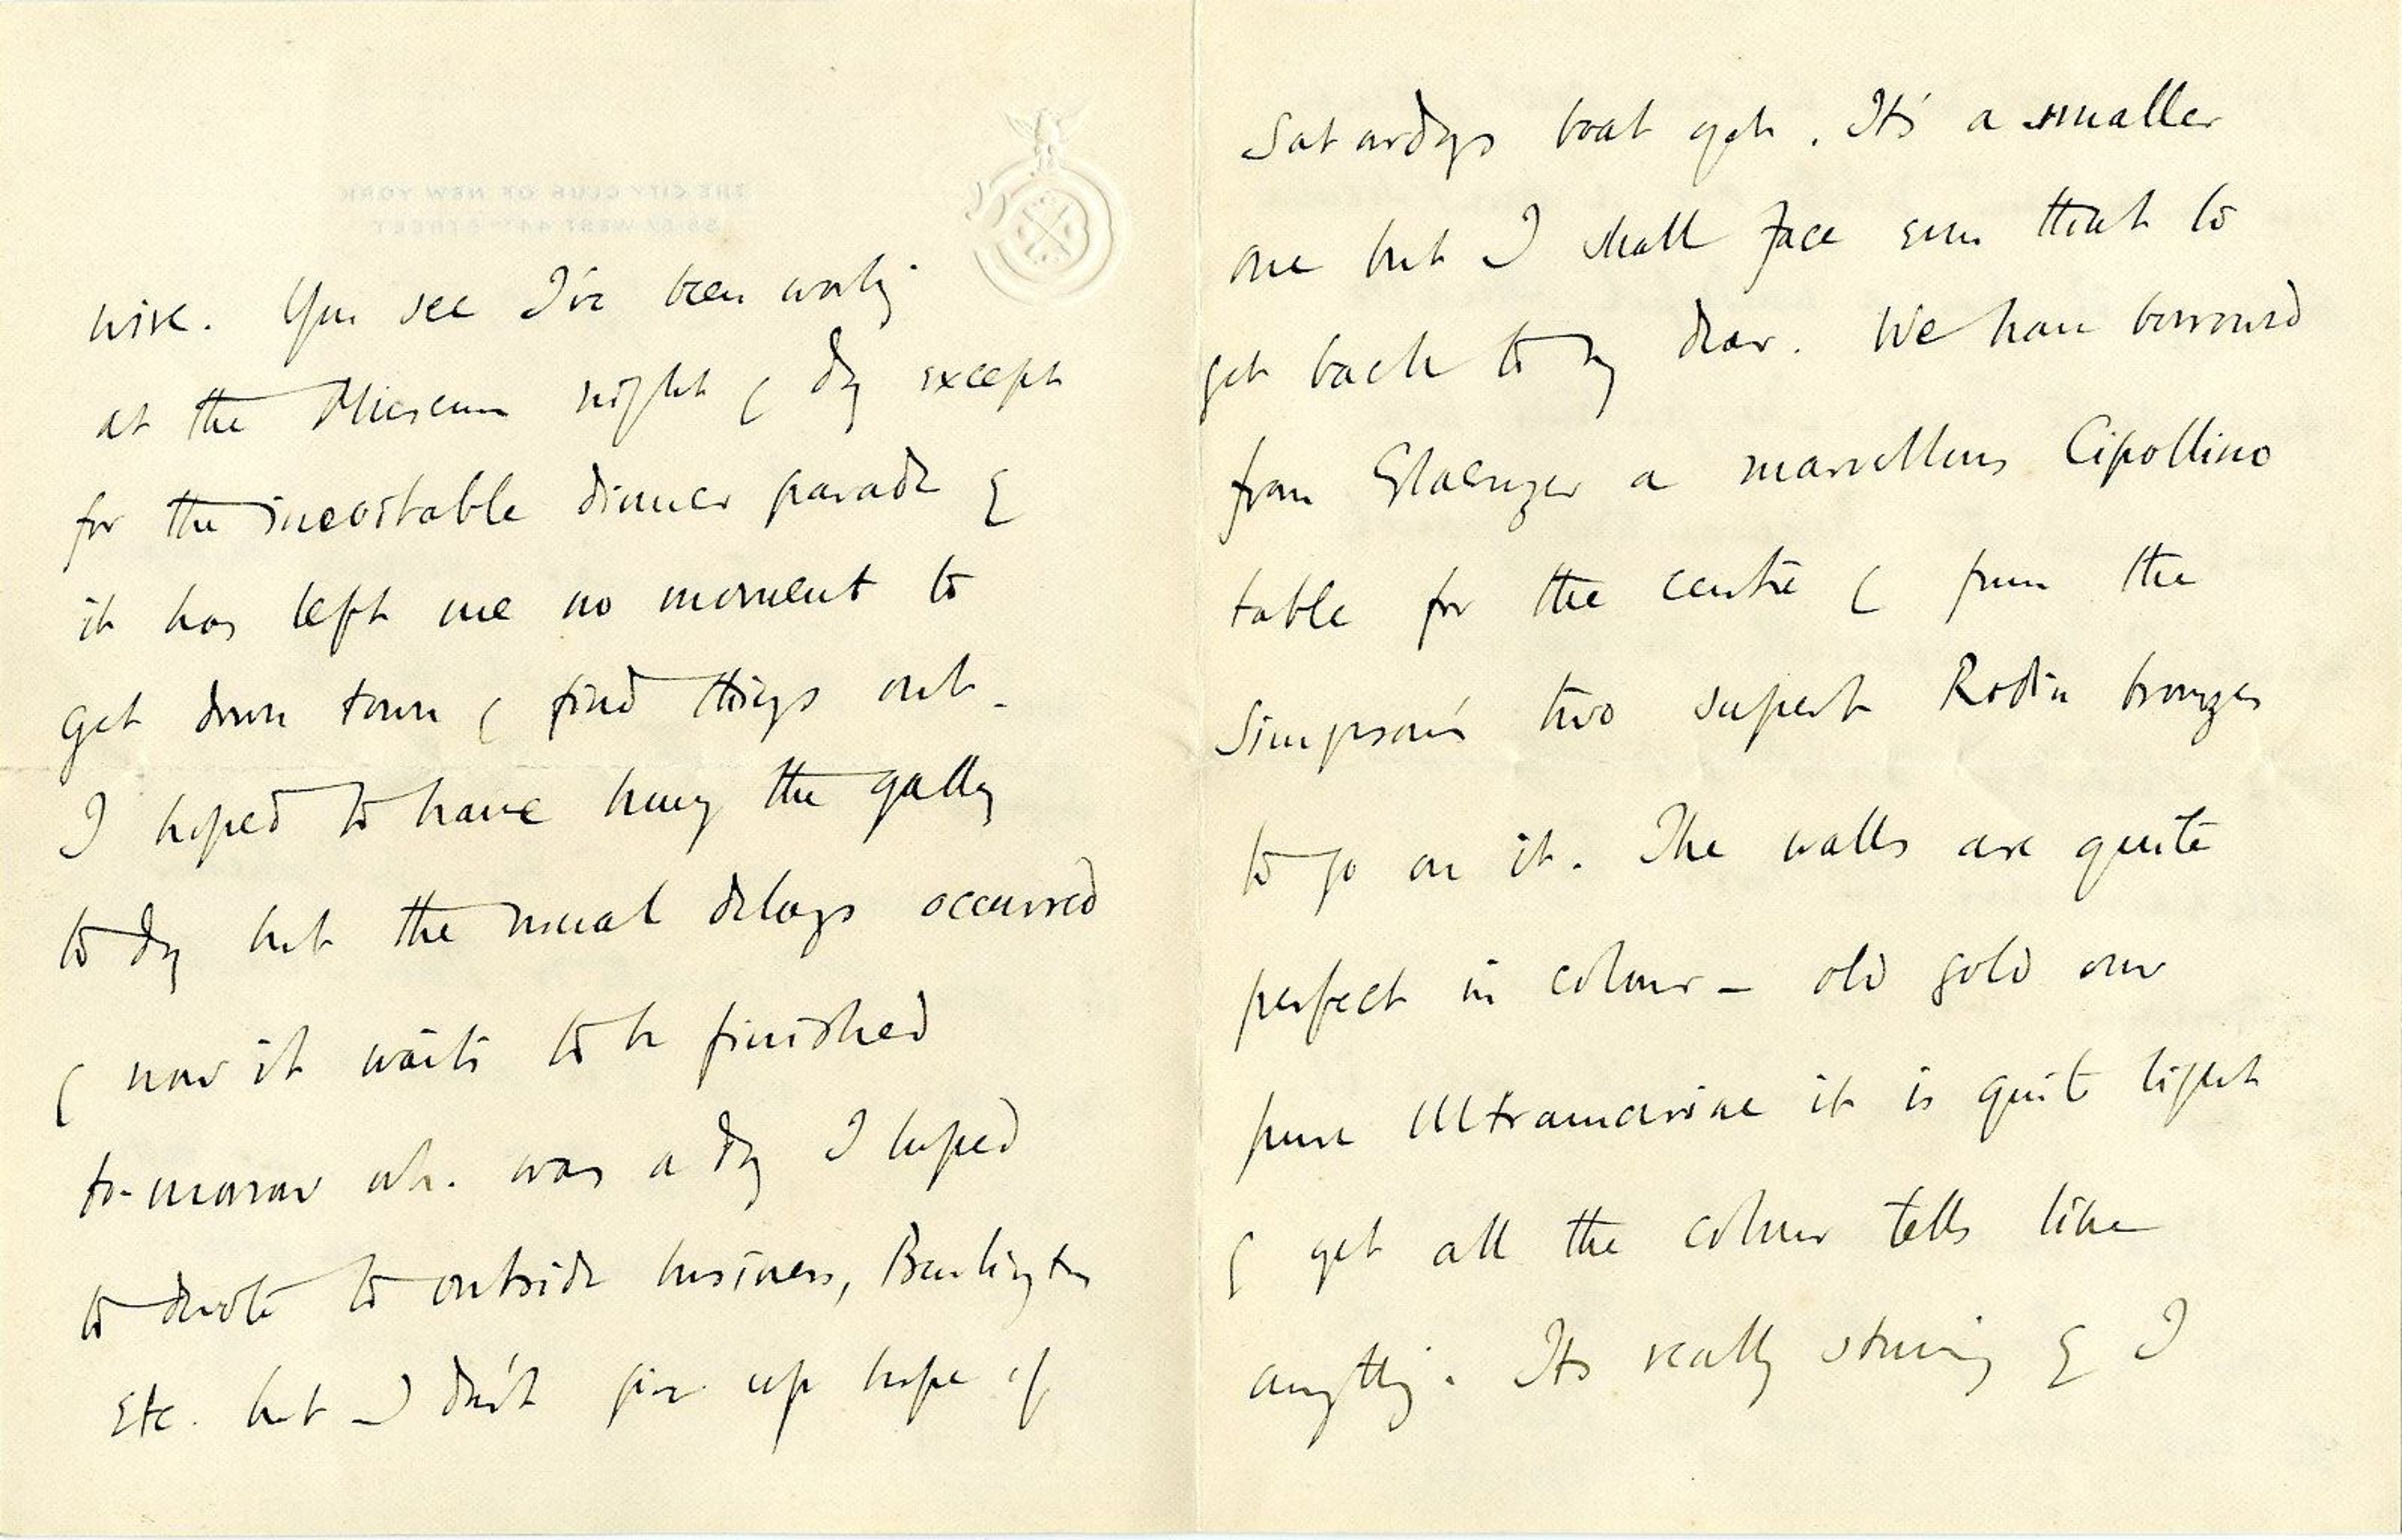 THE CITY CLUB OF NEW YORK
55 57 WEST 44TH STREET
wise. You see I've been working
at the Museum night & day except
for the inevitable dinner parade &
it has left me no moment to
get down town & find things out.
I hoped to have hung the gallery
to day but the usual delays occurred
& now it waits to be finished
to-morrow wh. was a day I hoped
to devote to outside business, Burlington
etc. but I don't give up hope of
Saturdays boat yet. It's a smaller
one but I shall face even that to
get back to my dear. We have borrowed
from Glaenzer a marvellous Cipollino
table for the centre & from the
Simpson's two superb Rodin bronzes
to go on it. The walls are quite
perfect in colour – old gold over
pure Ultramarine it is quite light
& yet all the colour tells like
anything. Its really stunning & I